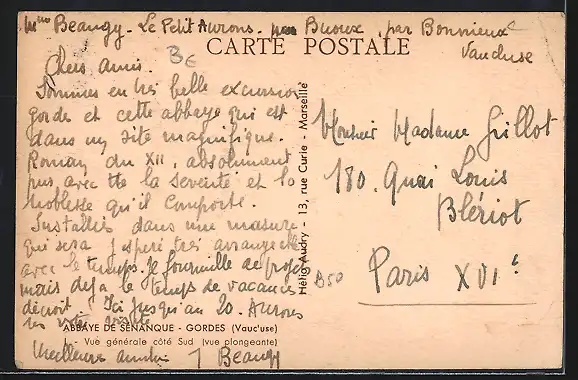 Mme Beaugy - Le Petit Aurons - par Buoux, par Bonnieux
Vaucluse
CARTE POSTALE
Chers amis.
Sommes en très belle excursion
gorde et cette abbaye qui est
dans un site magnifique.
Roman du XII, absolument
pur avec tte la sévérité et la
noblesse qu'il comporte.
Installés dans une masure
qui sera j'espère très arrangée
avec le temps. Je fourmille de projets
mais déjà le temps de vacances
décroit. Ici jusqu'au 20. Aurons
Meilleures J Beaugy
ABBAYE DE SÉNANQUE - GORDES (Vauc'use)
Vue générale côté Sud (vue plongeante)
Hélio Audry - 13, rue Curie - Marseille
Monsieur Madame Grillot
180. Quai Louis
Blériot
Paris XVIe
B50